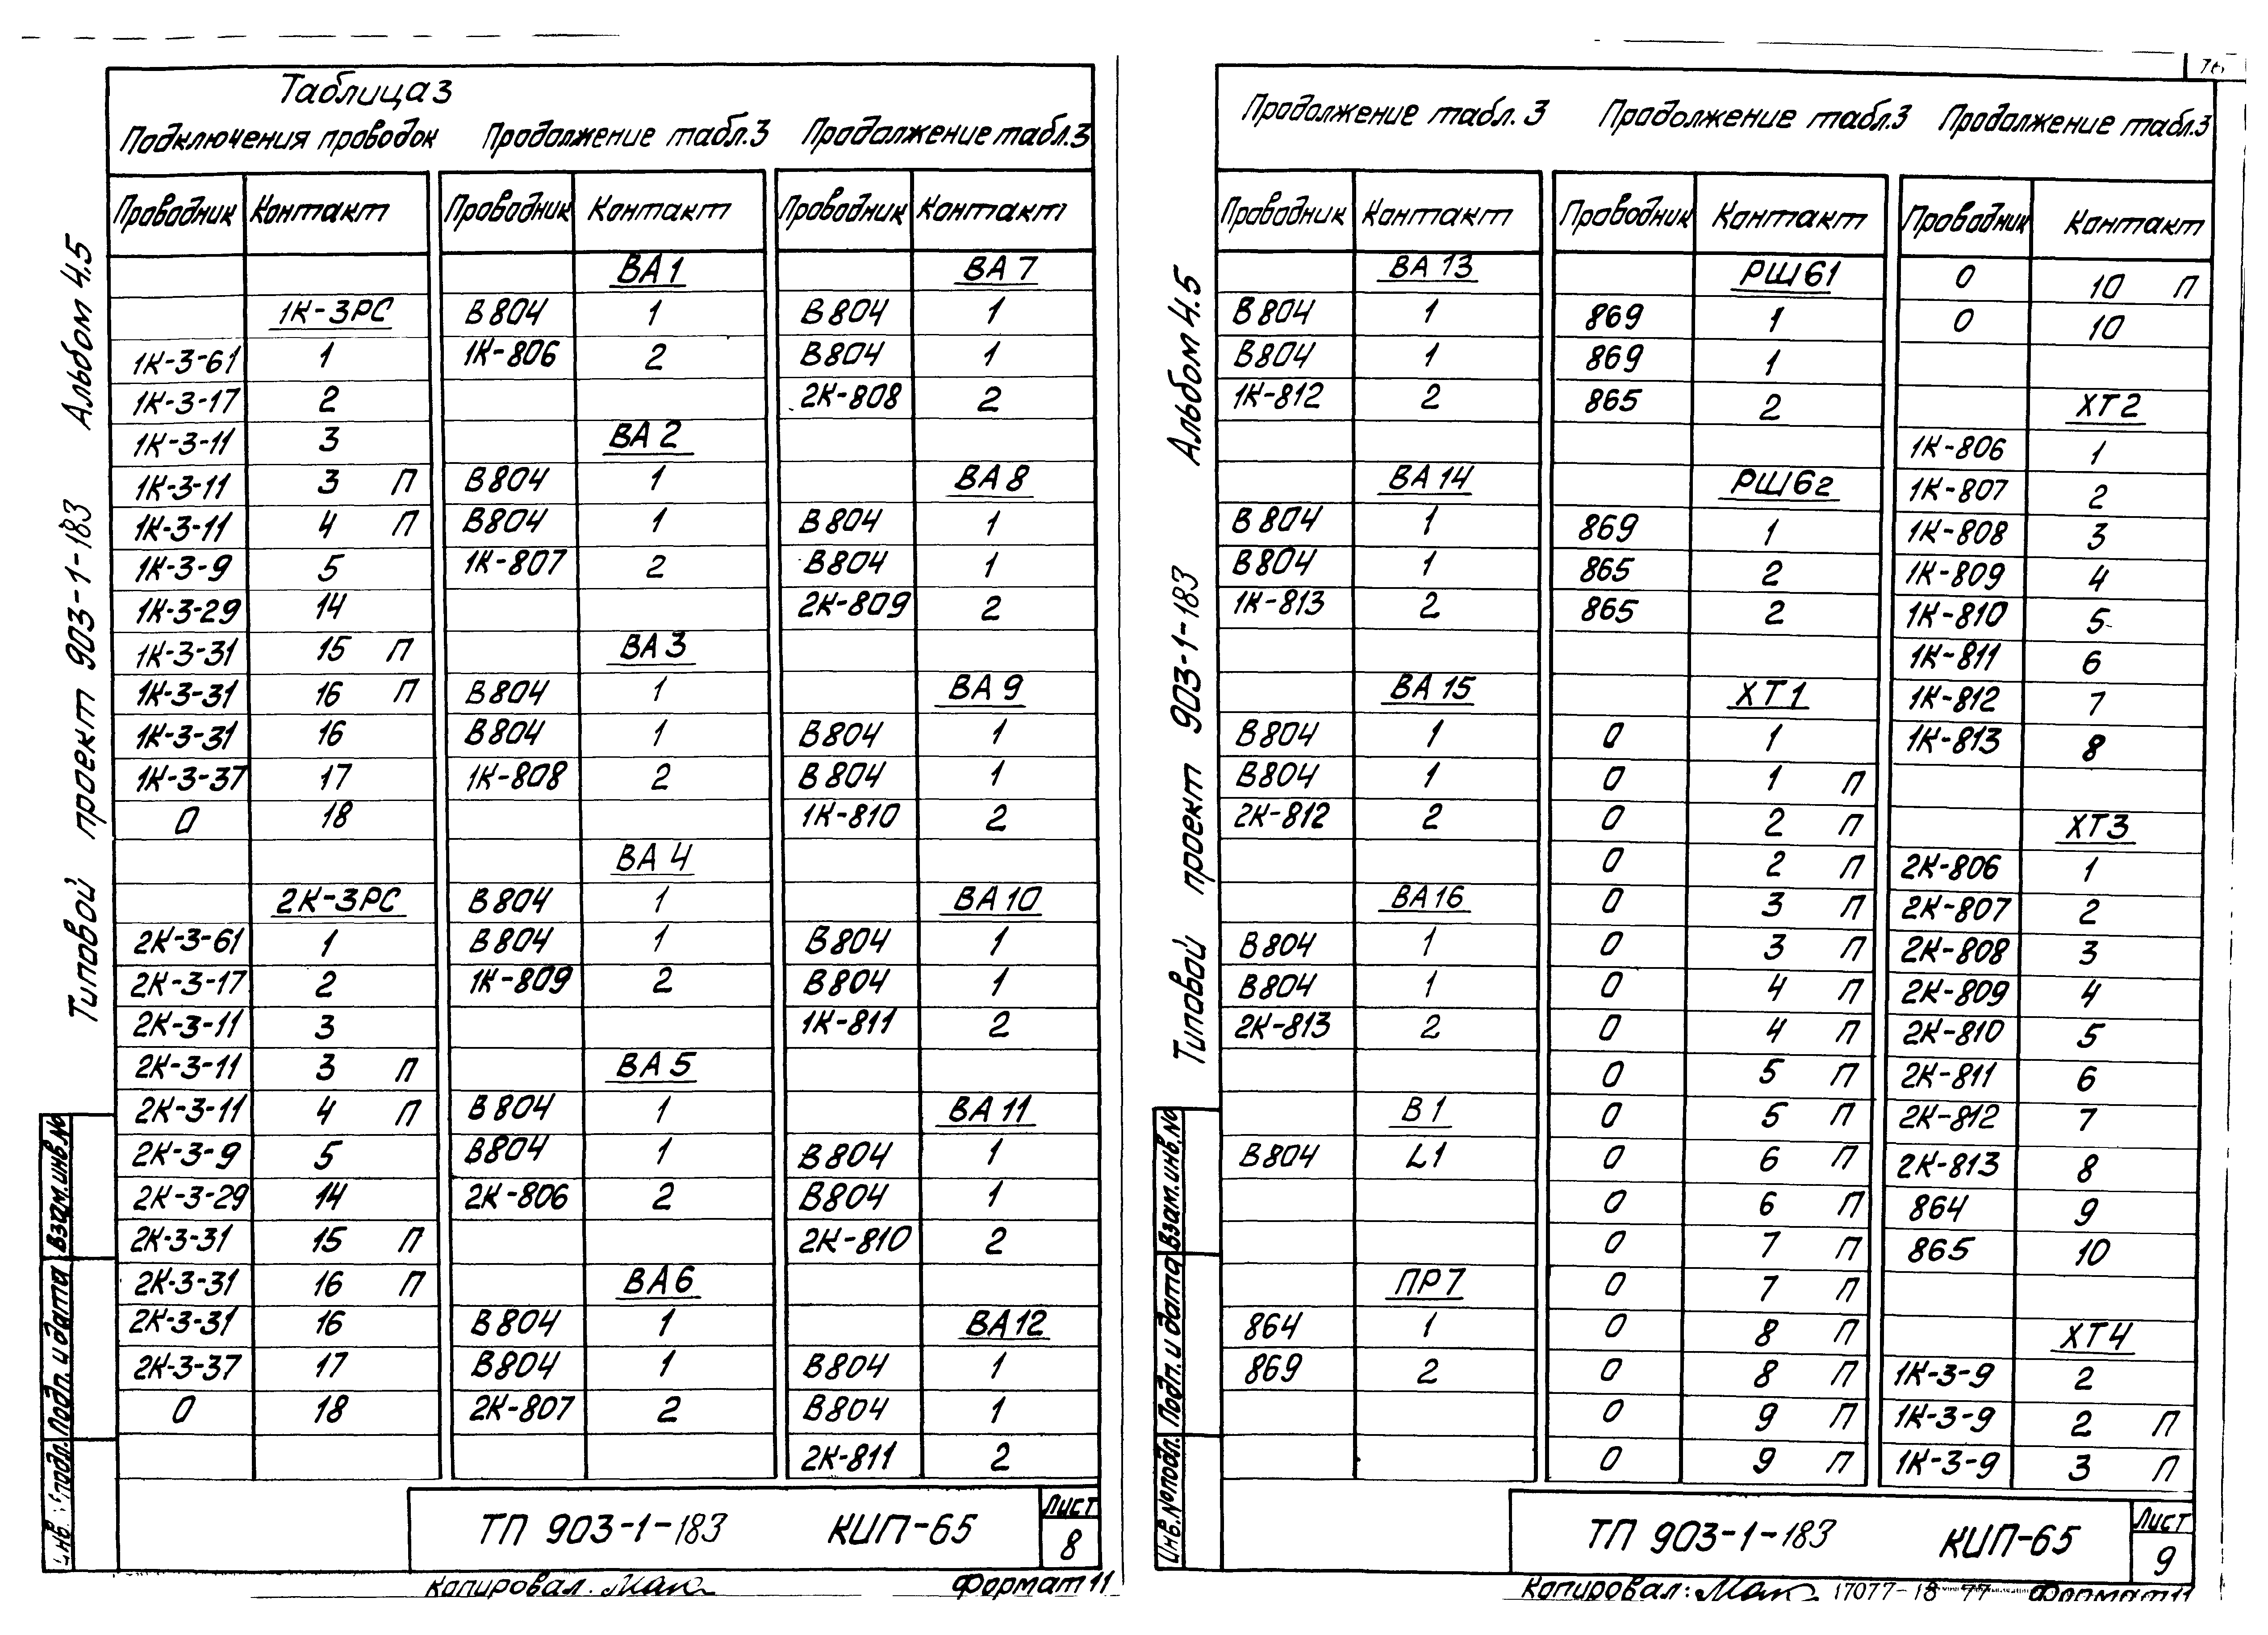 Таблица 3
Подключения проводок
Проводник Контакт
1К-ЗРС
1К-3-61 1
1К-3-17 2
1К-3-11 3
1К-3-11 3 П
1К-3-11 4 П
1К-3-9 5
1К-3-29 14
1К-3-31 15 П
1К-3-31 16 П
1К-3-31 16
1К-3-37 17
0 18
2К-ЗРС
2К-3-61 1
2К-3-17 2
2К-3-11 3
2К-3-11 3 П
2К-3-11 4 П
2К-3-9 5
2К-3-29 14
2К-3-31 15 П
2К-3-31 16 П
2К-3-31 16
2К-3-37 17
0 18
Продолжение табл.3
Проводник Контакт
ВА1
В804 1
1К-806 2
ВА2
В804 1
В804 1
1К-807 2
ВА3
В804 1
В804 1
1К-808 2
ВА4
В804 1
В804 1
1К-809 2
ВА5
В804 1
В804 1
2К-806 2
ВА6
В804 1
В804 1
2К-807 2
Продолжение табл.3
Проводник Контакт
ВА7
В804 1
В804 1
2К-808 2
ВА8
В804 1
В804 1
2К-809 2
ВА9
В804 1
В804 1
1К-810 2
ВА10
В804 1
В804 1
1К-811 2
ВА11
В804 1
В804 1
2К-810 2
ВА12
В804 1
В804 1
2К-811 2
Типовой проект 903-1-183 Альбом 4.5
Взам.инв.№
Подп. и дата
подл.
ТП 903-1-183 КИП-65
Лист
8
Копировал:
Формат 11
Продолжение табл. 3
Проводник Контакт
ВА13
В804 1
В804 1
1К-812 2
ВА14
В804 1
В804 1
1К-813 2
ВА15
В804 1
В804 1
2К-812 2
ВА16
В804 1
В804 1
2К-813 2
В1
В804 L1
ПР7
864 1
869 2
Продолжение табл.3
Проводник Контакт
РШ61
869 1
869 1
865 2
РШ62
869 1
865 2
865 2
ХТ1
0 1
0 1 П
0 2 П
0 2 П
0 3 П
0 3 П
0 4 П
0 4 П
0 5 П
0 5 П
0 6 П
0 6 П
0 7 П
0 7 П
0 8 П
0 8 П
0 9 П
0 9 П
Продолжение табл.3
Проводник Контакт
0 10 П
0 10
ХТ2
1К-806 1
1К-807 2
1К-808 3
1К-809 4
1К-810 5
1К-811 6
1К-812 7
1К-813 8
ХТ3
2К-806 1
2К-807 2
2К-808 3
2К-809 4
2К-810 5
2К-811 6
2К-812 7
2К-813 8
864 9
865 10
ХТ4
1К-3-9 2
1К-3-9 2 П
1К-3-9 3 П
Типовой проект 903-1-183 Альбом 4.5
Взам.инв.№
Подп. и дата
Инв.№подл.
ТП 903-1-183 КИП-65
Лист
9
Копировал:
17077-18 77
Формат 11